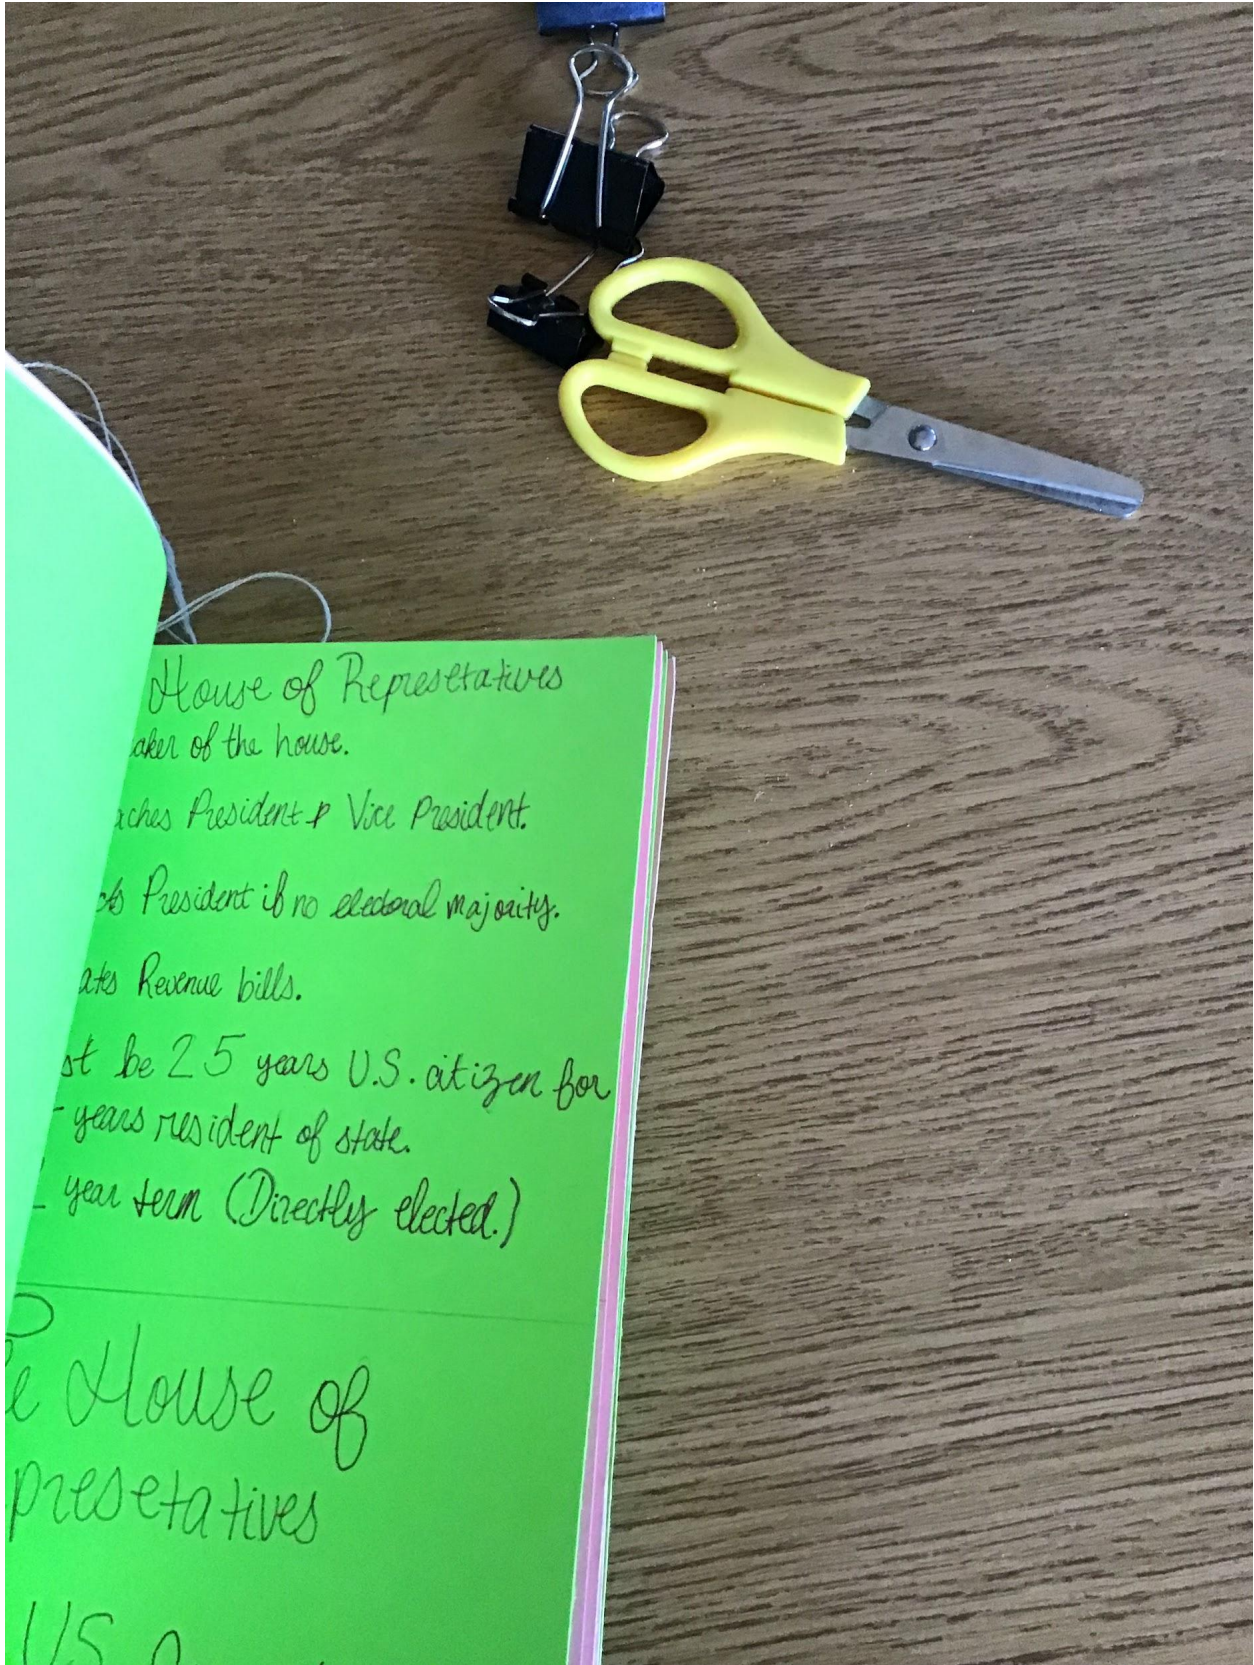 House of Represetatives
aker of the house.
aches President & Vice President.
cts President if no electoral majority.
ates Revenue bills.
st be 25 years U.S. citizen for
years resident of state.
year term (Directly elected.)
e House of
presetatives
US